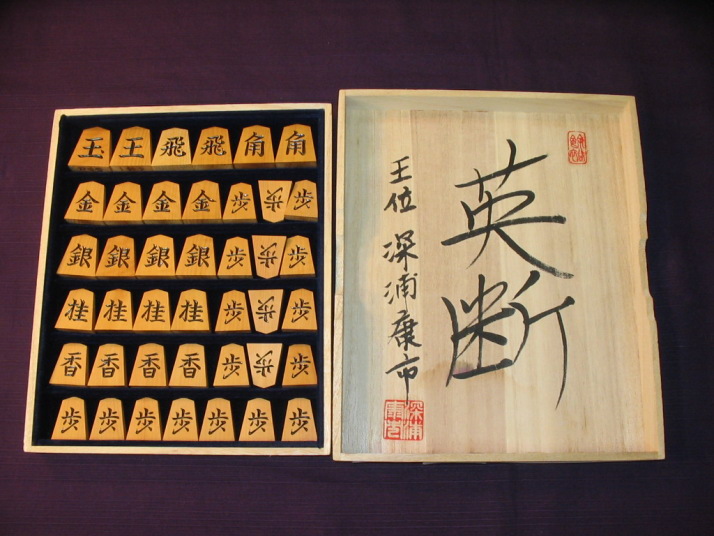 玉 王 飛 飛 角 角
金 金 金 金 歩 歩 歩
銀 銀 銀 銀 歩 歩 歩
桂 桂 桂 桂 歩 歩 歩
香 香 香 香 歩 歩 歩
歩 歩 歩 歩 歩 歩 歩
英断
王位 深浦康市
深浦康市